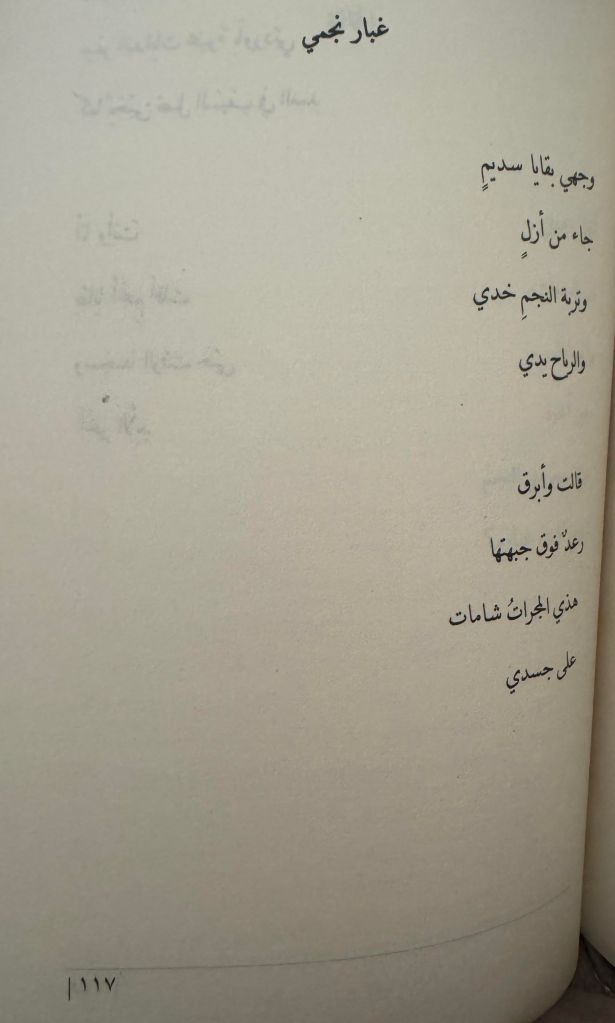 غبار نجمي
وجهي بقايا سديمٍ
جاء من أزلٍ
وتربة النجمِ خدي
والرياح يدي
قالت وأبرق
رعدٌ فوق جبهتها
هذي المجراتُ شامات
على جسدي
١١٧